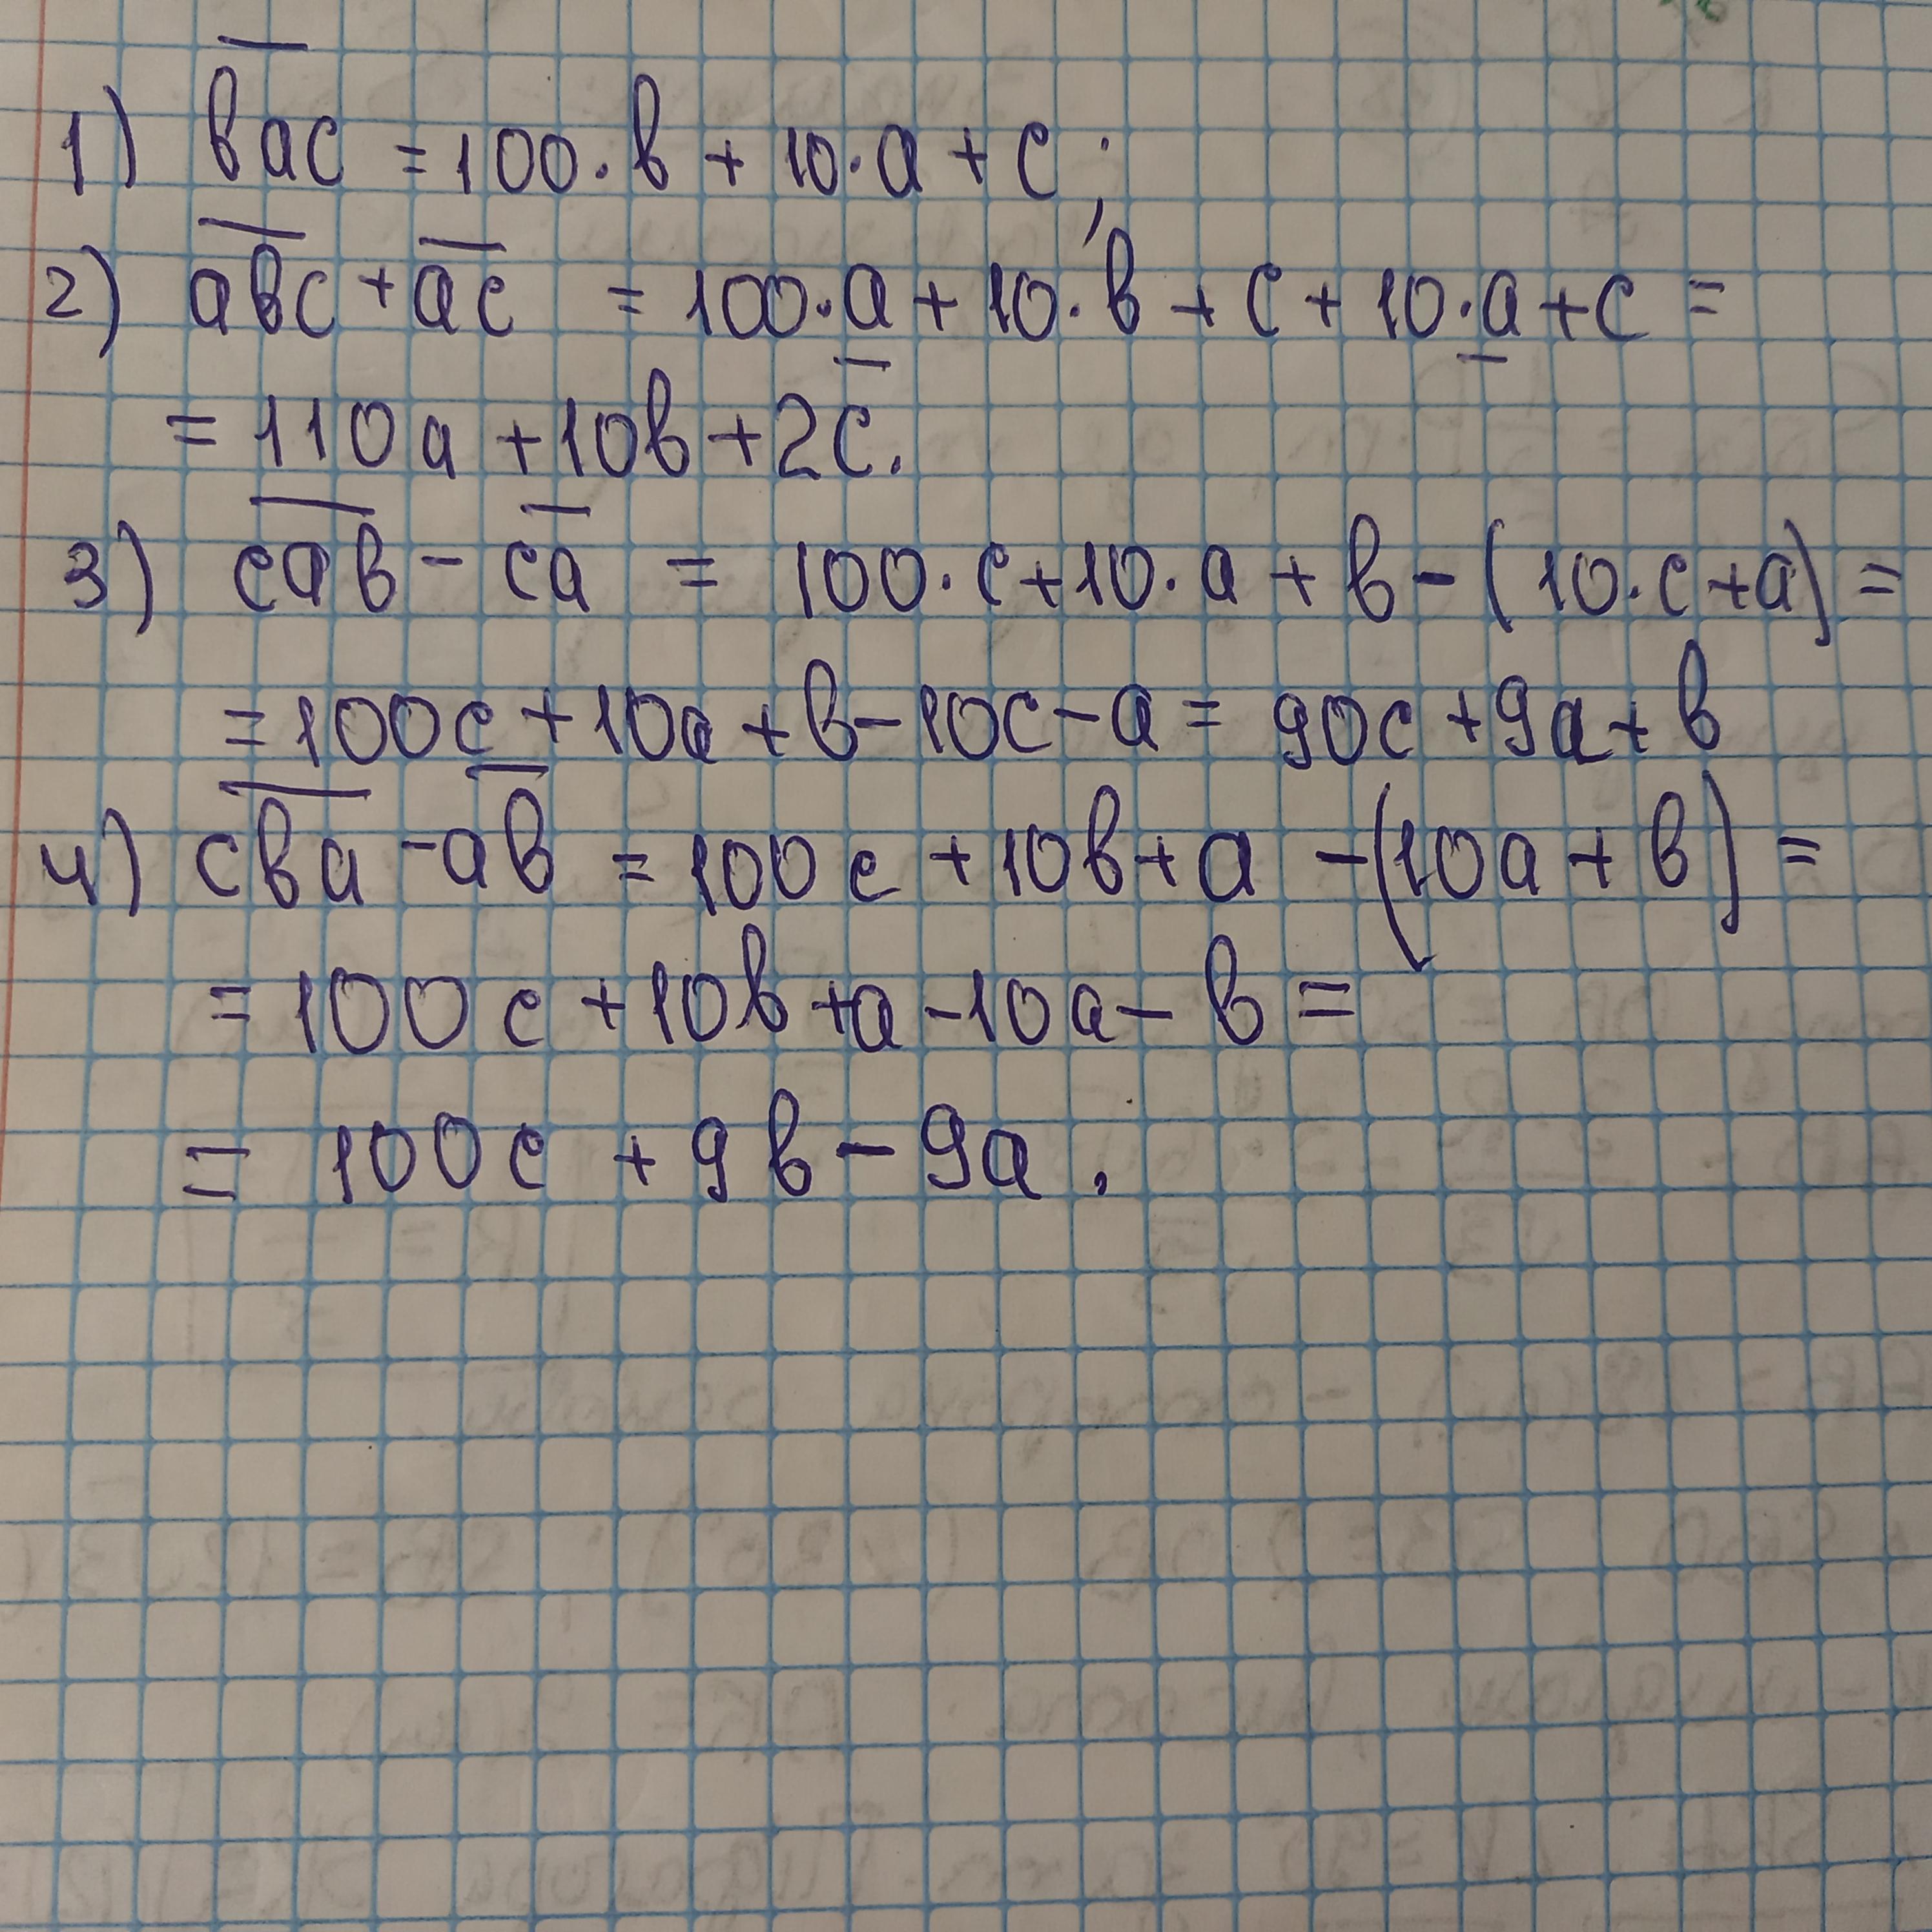 1) bac = 100·b + 10·a + c;
2) abc + ac = 100·a + 10·b + c + 10·a + c =
= 110a + 10b + 2c.
3) cab - ca = 100·c + 10·a + b - (10·c + a) =
= 100c + 10a + b - 10c - a = 90c + 9a + b
4) cba - ab = 100c + 10b + a - (10a + b) =
= 100c + 10b + a - 10a - b =
= 100c + 9b - 9a.